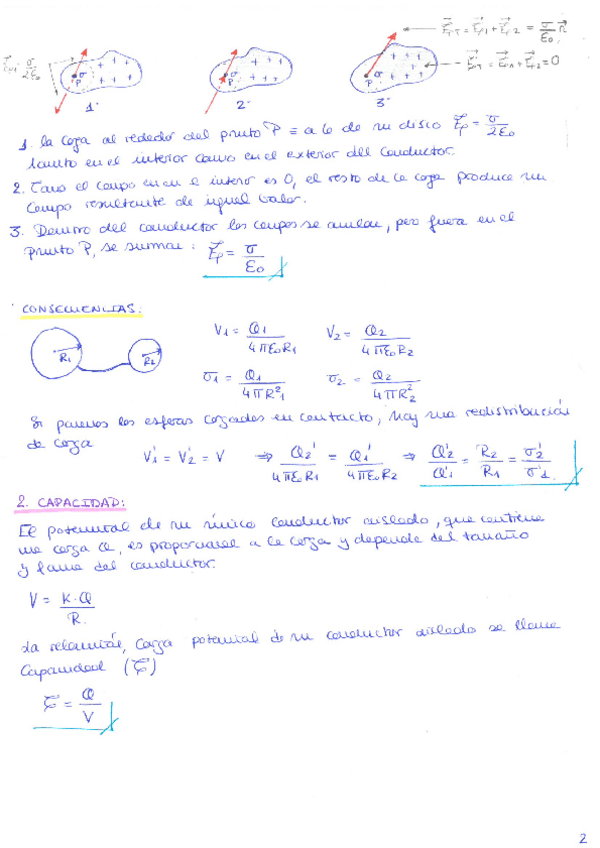 E⃗₁₁ = σ/2ε₀
E⃗T = E⃗₁ + E⃗₂ = σ/ε₀ n⃗
E⃗T = E⃗₁ + E⃗₂ = 0
σ P + + + + + + +
σ P + + + + + + +
σ P + + + + + + +
1· 2· 3·
1. la carga al rededor del punto P ≡ a la de un disco E⃗p = σ/2ε₀
tanto en el interior como en el exterior del conductor.
2. Como el campo en el interior es 0, el resto de la carga produce un
campo resultante de igual valor.
3. Dentro del conductor los campos se anulan, pero fuera en el
punto P, se suman: E⃗p = σ/ε₀
CONSECUENCIAS:
R1 R2
V1 = Q1/4πε₀R1 V2 = Q2/4πε₀R2
σ1 = Q1/4πR1² σ2 = Q2/4πR2²
Si ponemos las esferas cargadas en contacto, hay una redistribución
de carga
V1' = V2' = V ⇒ Q2'/4πε₀R1 = Q1'/4πε₀R2 ⇒ Q2'/Q1' = R2/R1 = σ2'/σ1'
2. CAPACIDAD:
El potencial de un único conductor aislado, que contiene
una carga Q, es proporcional a la carga y depende del tamaño
y forma del conductor.
V = K·Q/R
La relación, carga potencial de un conductor aislado se llama
Capacidad (C)
C = Q/V
2